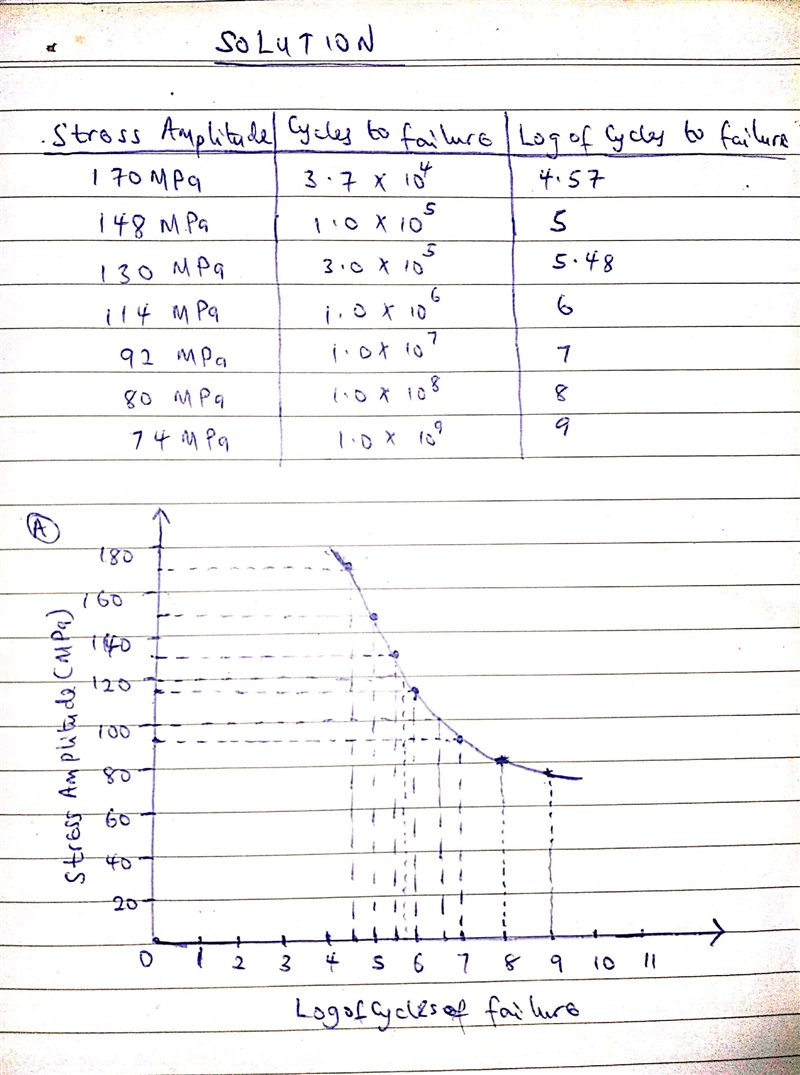 SOLUTION
Stress Amplitude Cycles to failure Log of Cycles to failure
170 MPa 3.7 × 10⁴ 4.57
148 MPa 1.0 × 10⁵ 5
130 MPa 3.0 × 10⁵ 5.48
114 MPa 1.0 × 10⁶ 6
92 MPa 1.0 × 10⁷ 7
80 MPa 1.0 × 10⁸ 8
74 MPa 1.0 × 10⁹ 9
A
Stress Amplitude (MPa)
180
160
140
120
100
80
60
40
20
0 1 2 3 4 5 6 7 8 9 10 11
Log of Cycles of failure